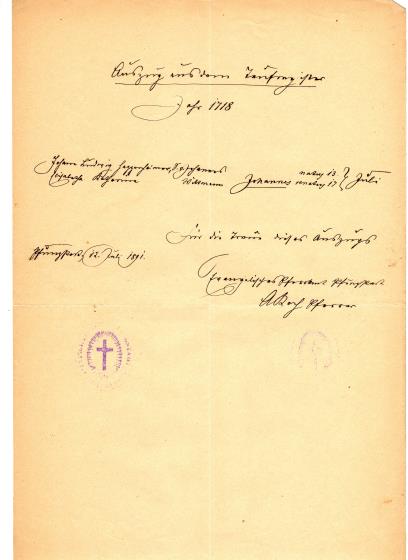 Auszug aus dem Taufregister
Jahr 1718
Johann Ludwig
Elisabetha Katharina Wittmann Johannes natus 13. renatus 17. Juli
Für die Treue dieses Auszugs
Pfungstadt, 12. Juli 1891.
Evangelisches Pfarramt Pfungstadt
A Koch Pfarrer